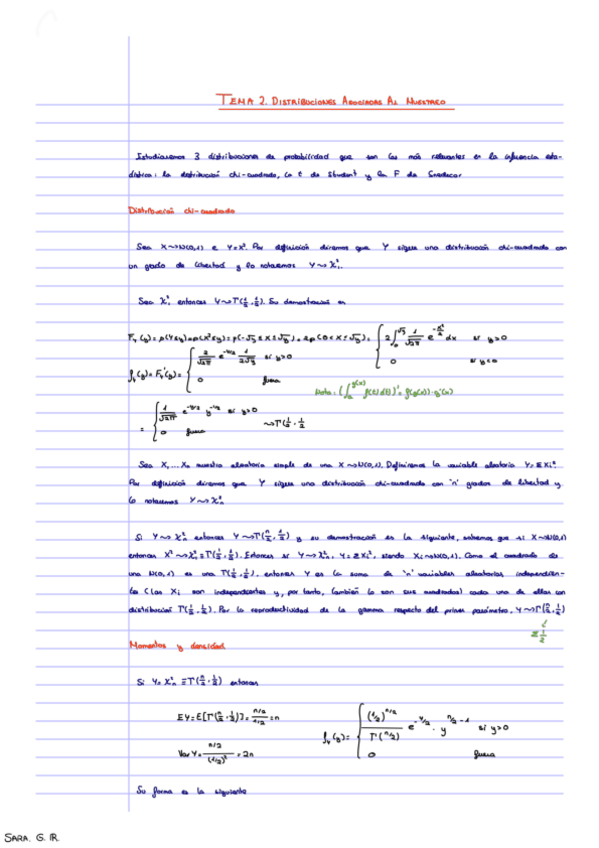 TEMA 2. DISTRIBUCIONES ASOCIADAS AL MUESTREO
Estudiaremos 3 distribuciones de probabilidad que son las más relevantes en la inferencia esta-
dística: la distribución chi-cuadrado, la t de Student y la F de Snedecor
Distribución chi-cuadrado
Sea X~N(0,1) e Y=X². Por definición diremos que Y sigue una distribución chi-cuadrado con
un grado de libertad y lo notaremos Y~χ²₁.
Sea χ²₁ entonces Y~Γ(1/2, 1/2). Su demostración es
F_Y(y) = p(Y≤y) = p(X²≤y) = p(-√y ≤ X ≤ √y) = 2p(0 < X ≤ √y) = { 2∫₀^√y 1/√2π e^(-x²/2) dx si y>0
0 si y<0
f_Y(y) = F_Y'(y) = { 2/√2π e^(-y/2) 1/2√y si y>0
0 fuera
Nota: (∫_a^g(x) f(t)dt)' = f(g(x))·g'(x)
= { 1/√2π e^(-y/2) y^(-1/2) si y>0
0 fuera
~Γ(1/2, 1/2
Sea X₁...Xn muestra aleatoria simple de una X~N(0,1). Definiremos la variable aleatoria Y=ΣXi².
Por definición diremos que Y sigue una distribución chi-cuadrado con 'n' grados de libertad y
lo notaremos Y~χ²n
Si Y~χ²n entonces Y~Γ(n/2, 1/2) y su demostración es la siguiente, sabemos que si X~N(0,1)
entonces X²~χ²₁≡Γ(1/2, 1/2). Entonces si Y~χ²n, Y=ΣXi², siendo Xi~N(0,1). Como el cuadrado de
una N(0,1) es una Γ(1/2, 1/2), entonces Y es la suma de 'n' variables aleatorias independien-
tes (las Xi son independientes y, por tanto, también lo son sus cuadrados) cada una de ellas con
distribución Γ(1/2, 1/2). Por la reproductividad de la gamma respecto del primer parámetro, Y~Γ(n/2, 1/2)
Σ 1/2
Momentos y densidad
Si Y~χ²n ≡Γ(n/2, 1/2) entonces
EY=E[Γ(n/2, 1/2)] = (n/2)/(1/2) = n
f_Y(y) = { (1/2)^(n/2) / Γ(n/2) e^(-y/2) · y^(n/2 - 1) si y>0
0 fuera
Var Y = (n/2)/(1/2)² = 2n
Su forma es la siguiente
SARA. G. R.